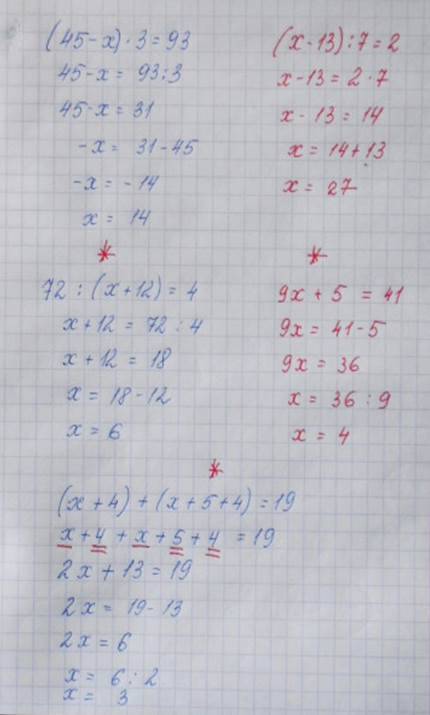 (45-x)·3=93
45-x= 93:3
45-x= 31
-x= 31-45
-x= -14
x= 14
(x-13):7=2
x-13=2·7
x-13=14
x=14+13
x= 27
*
*
72:(x+12)=4
x+12=72:4
x+12=18
x=18-12
x=6
9x+5=41
9x=41-5
9x=36
x=36:9
x=4
*
(x+4)+(x+5+4)=19
x+4+x+5+4=19
2x+13=19
2x=19-13
2x=6
x= 6:2
x= 3